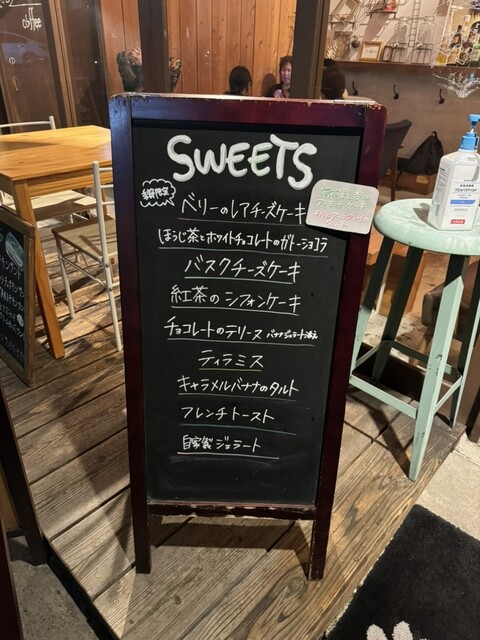 coffee
SWEETS
ベリーのレアチーズケーキ
ほうじ茶とホワイトチョコレートのガトーショコラ
バスクチーズケーキ
紅茶のシフォンケーキ
チョコレートのテリーヌ バナナジェラート添え
ティラミス
キャラメルバナナのタルト
フレンチトースト
自家製ジェラート